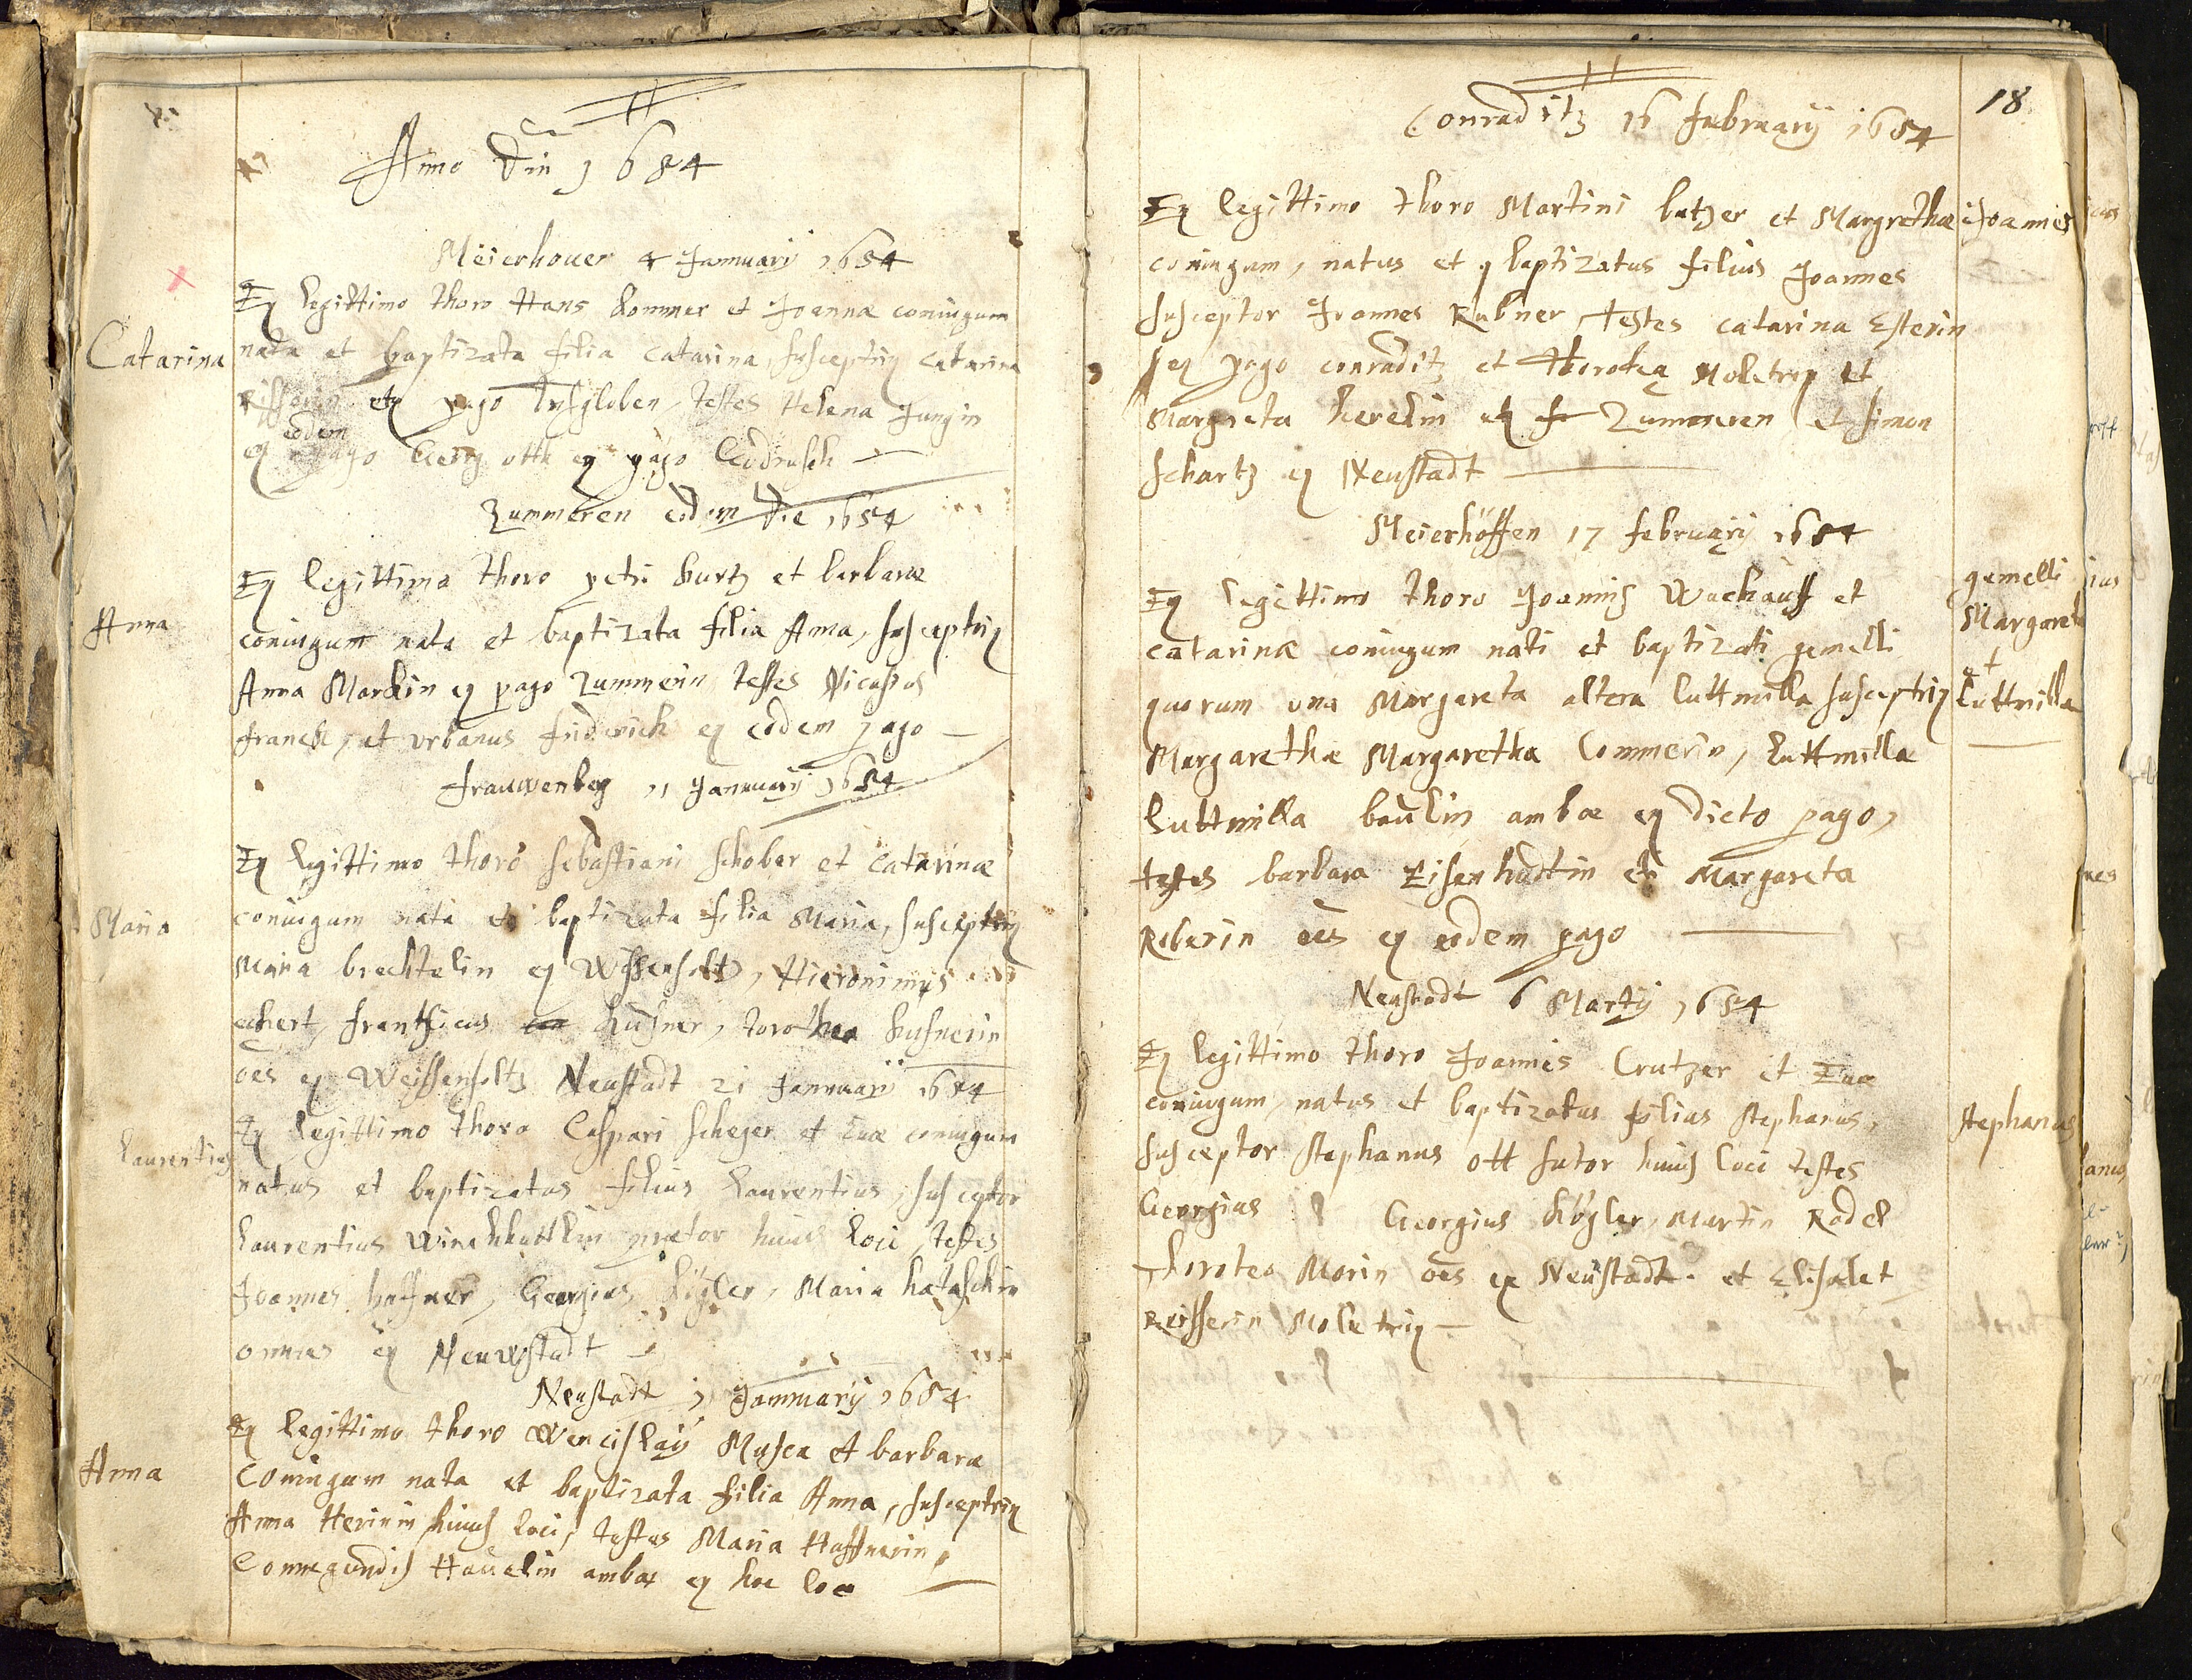 Anno Dni 1684
Meierhouer 4 Januuarij 1684
Catarina
Ex legittimo thoro Hans Kommer et Joannæ coniugum
nata et baptizata filia Catarina, susceptrix Catarina
ex pago testes Helena Jungin
eodem
ex pago Georg ott ex pago
Zummeren eodem die 1684
Anna
Ex legittimo thoro petri Kurtz et barbaræ
coniugum nata et baptizata filia Anna, susceptrix
Anna Marckin ex pago Zummerin testes Nicasius
franck, et vrbanus friderich ex eodem pago
frauwenberg 11 Januuarij 1684
Maria
Ex legittimo thoro sebastiani schober et Catarinæ
coniugum nata et baptizata filia Maria, susceptrix
Maria brechtelin ex Wissensoltz, Hieronimus
eckert, frantsicus Küsner, torothea Kusnerin
oes ex Weissensoltz Neustadt 21 Januuarij 1684
Laurentius
Ex legittimo thoro Caspari scheger et Euæ coniugum
natus et baptizatus filius Laurentius, susceptor
Laurentius prætor huius loci, testes
Joannes haffner, Georgius Kögler, Maria hataschin
omnes ex Neuwstadt
Neustadt Januuarij 1684
Anna
Ex legittimo thoro Wencislaij Musca et barbara
Coniugum nata et baptizata filia Anna, susceptrix
Anna Herinin huius loci, testes Maria Haffnerin,
Connegundis Hauelin ambæ ex hoc loco
18
Conraditz 16 februarij 1684
Joannes
Ex legittimo thoro Martini butzer et Margrethæ
coniugum, natus et baptizatus filius Joannes
susceptor Joannes Rubner, testes catarina Esterin
ex pago conraditz et thorotea Molitrix et
Margareta herelin ex Zummeren et simon
schartz ex Neustadt
Meierhöffen 17 februarij 1684
gemelli
Margareta
et
Luttmilla
Ex legittimo thoro Joannis Wachauff et
catarinæ coniugum nati et baptizati gemelli
quorum una Margareta altera luttmilla susceptrix
Margarethæ Margaretha Commerin, Luttmillæ
Luttmilla baulin ambæ ex dicto pago,
testes barbara Eisenhuttin et Margareta
Roberin oes ex eodem pago
Neustadt 6 Martij 1684
Stephanus
Ex legittimo thoro Joannis Crutzer et Euæ
coniugum, natus et baptizatus filius Stephanus,
susceptor Stephanus ott sutor huius loci testes
Georgius Georgius Kögler, Martin Rodel
thorotea Morin oes ex Neustadt. et Elisabet
Reisserin Molitrix